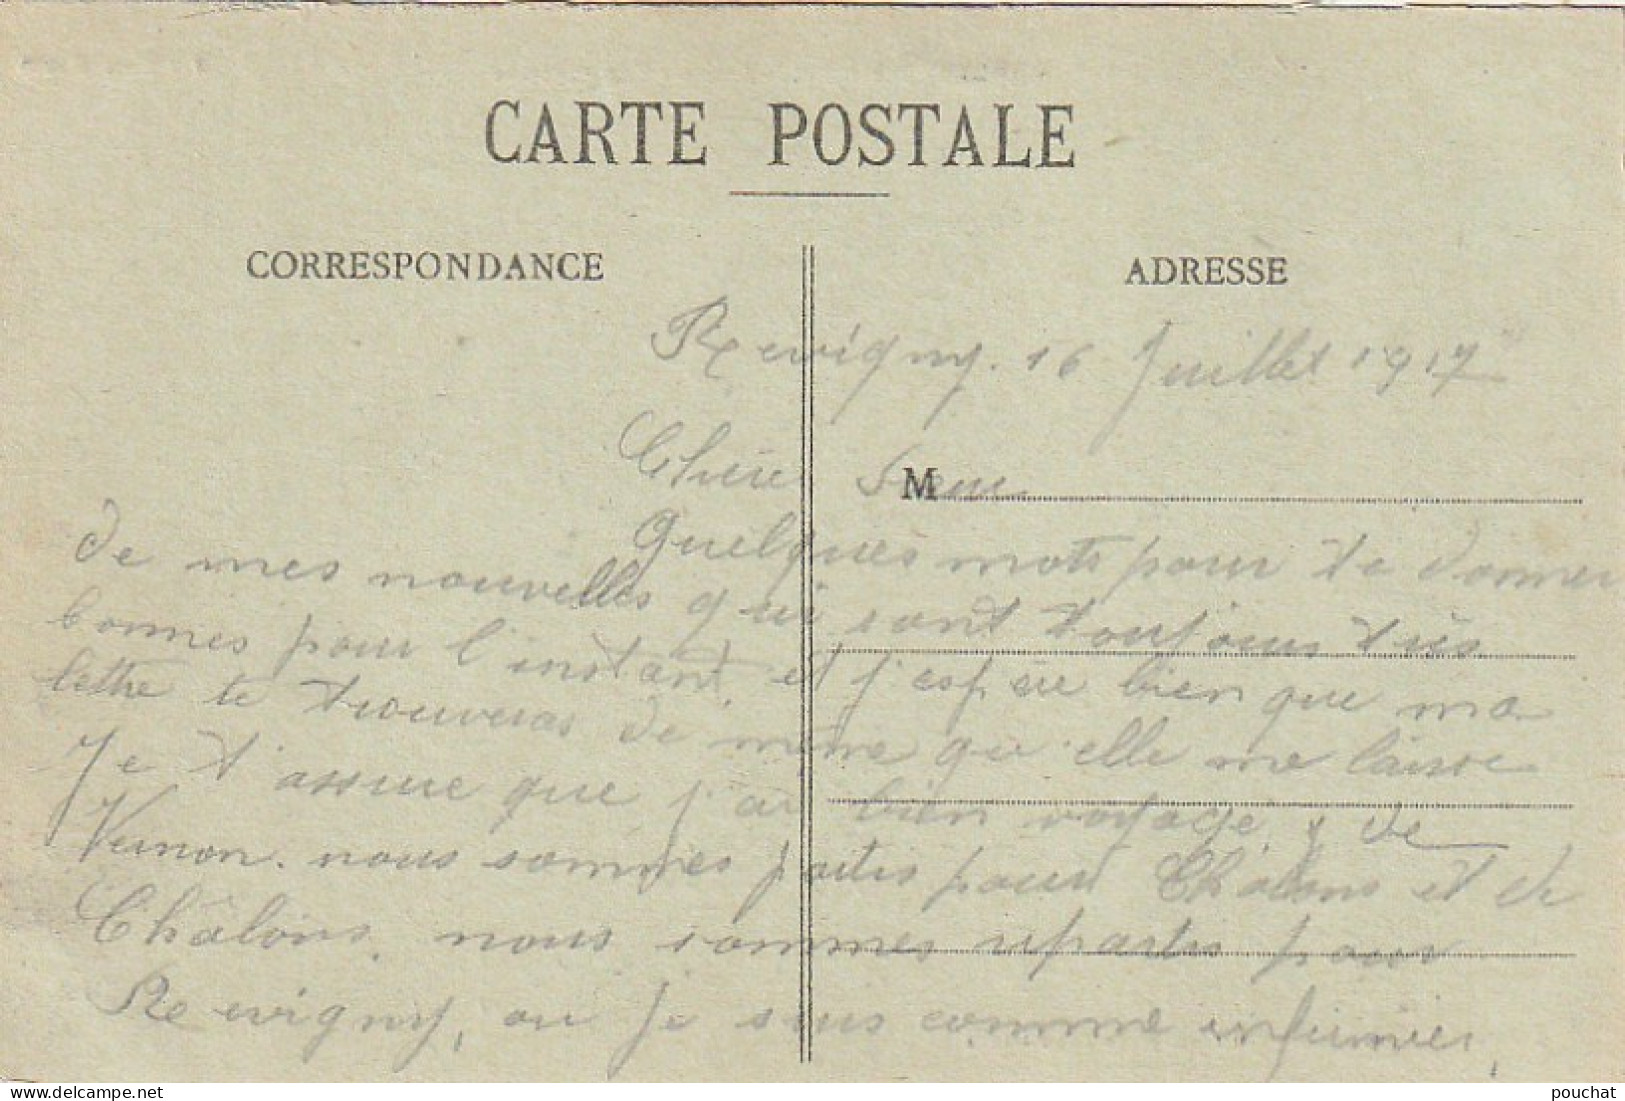 CARTE POSTALE
CORRESPONDANCE
ADRESSE
Revigny. 16 Juillet 1917
Chère Sœur
M
Quelques mots pour te donner
de mes nouvelles qui sont toujours très
bonnes pour l'instant, et j'espère bien que ma
lettre te trouveras de même qu'elle me laisse
Je t'assure que j'ai bien voyagé, de
Vernon. nous sommes partis pour Châlons et de
Châlons. nous sommes repartis pour
Revigny, ou je suis comme infirmier,
pouchat